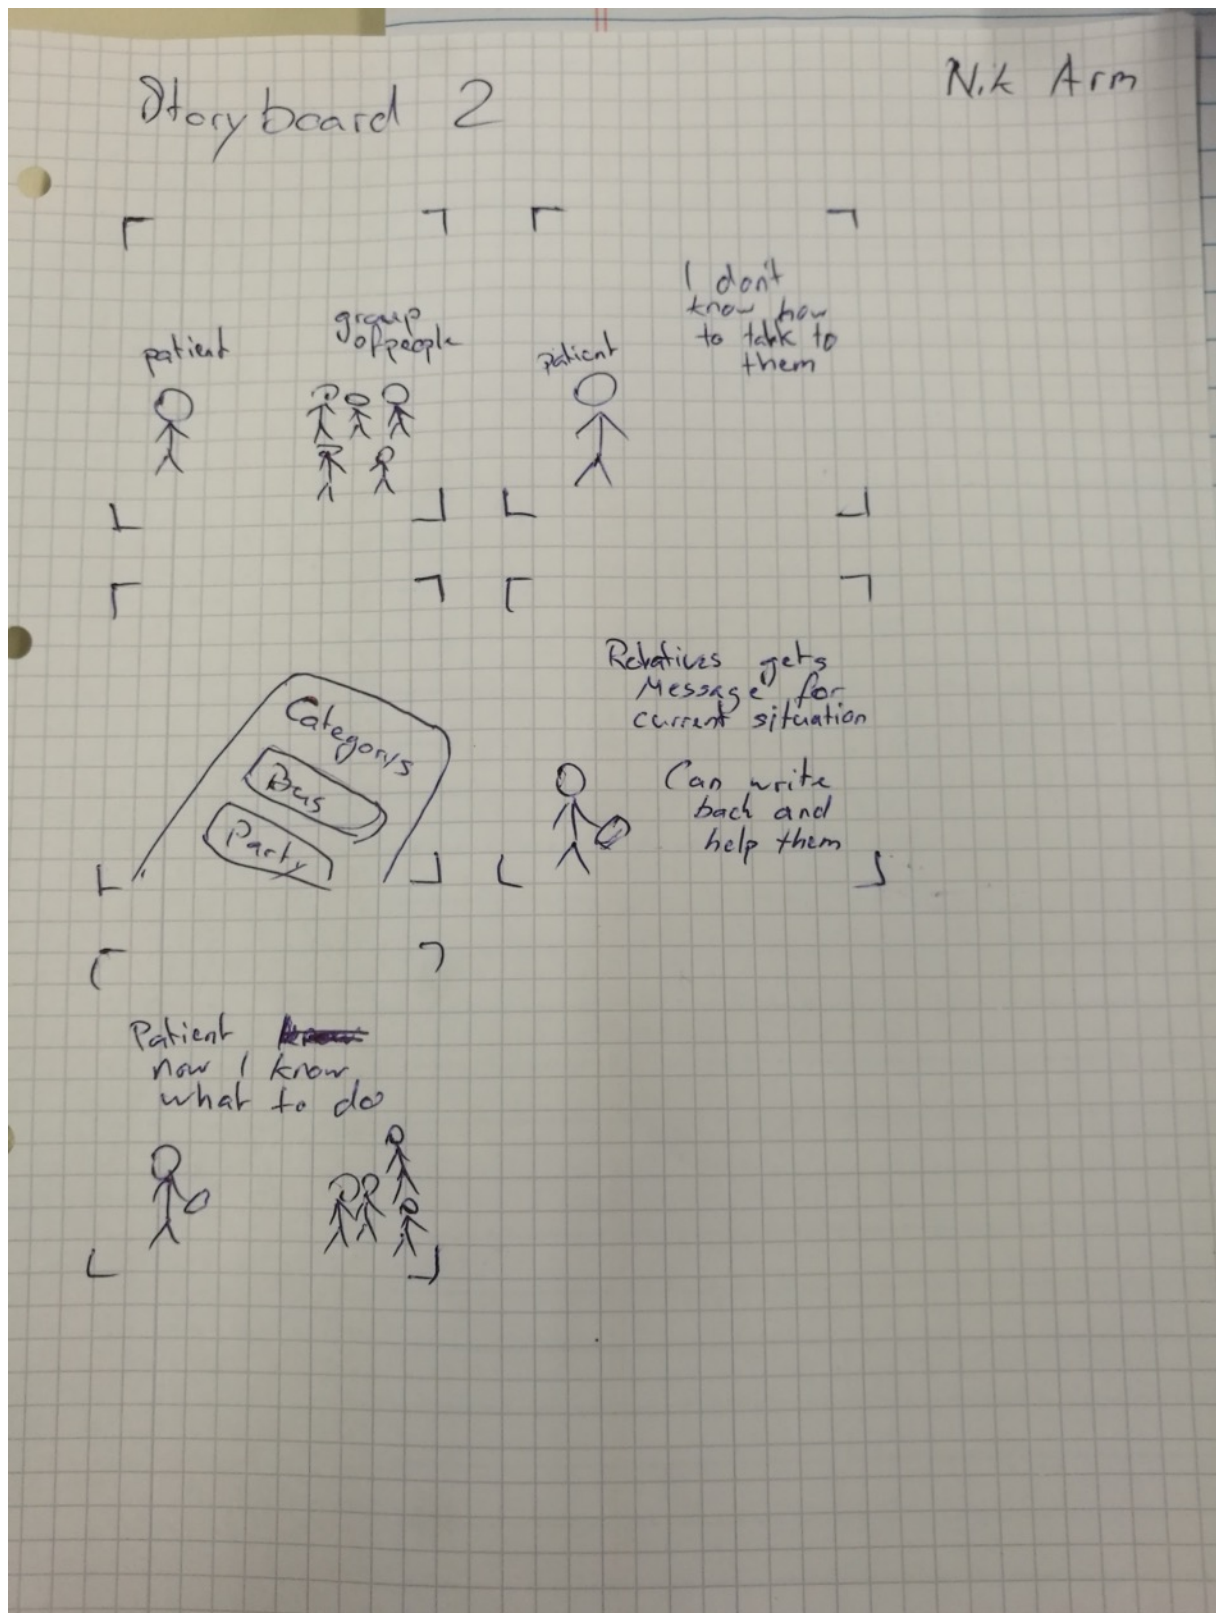 Storyboard 2
Nik Arm
patient
group
of people
patient
I don't
know how
to talk to
them
Categorys
Bus
Party
Relatives gets
Message for
current situation
Can write
back and
help them
Patient
now I know
what to do